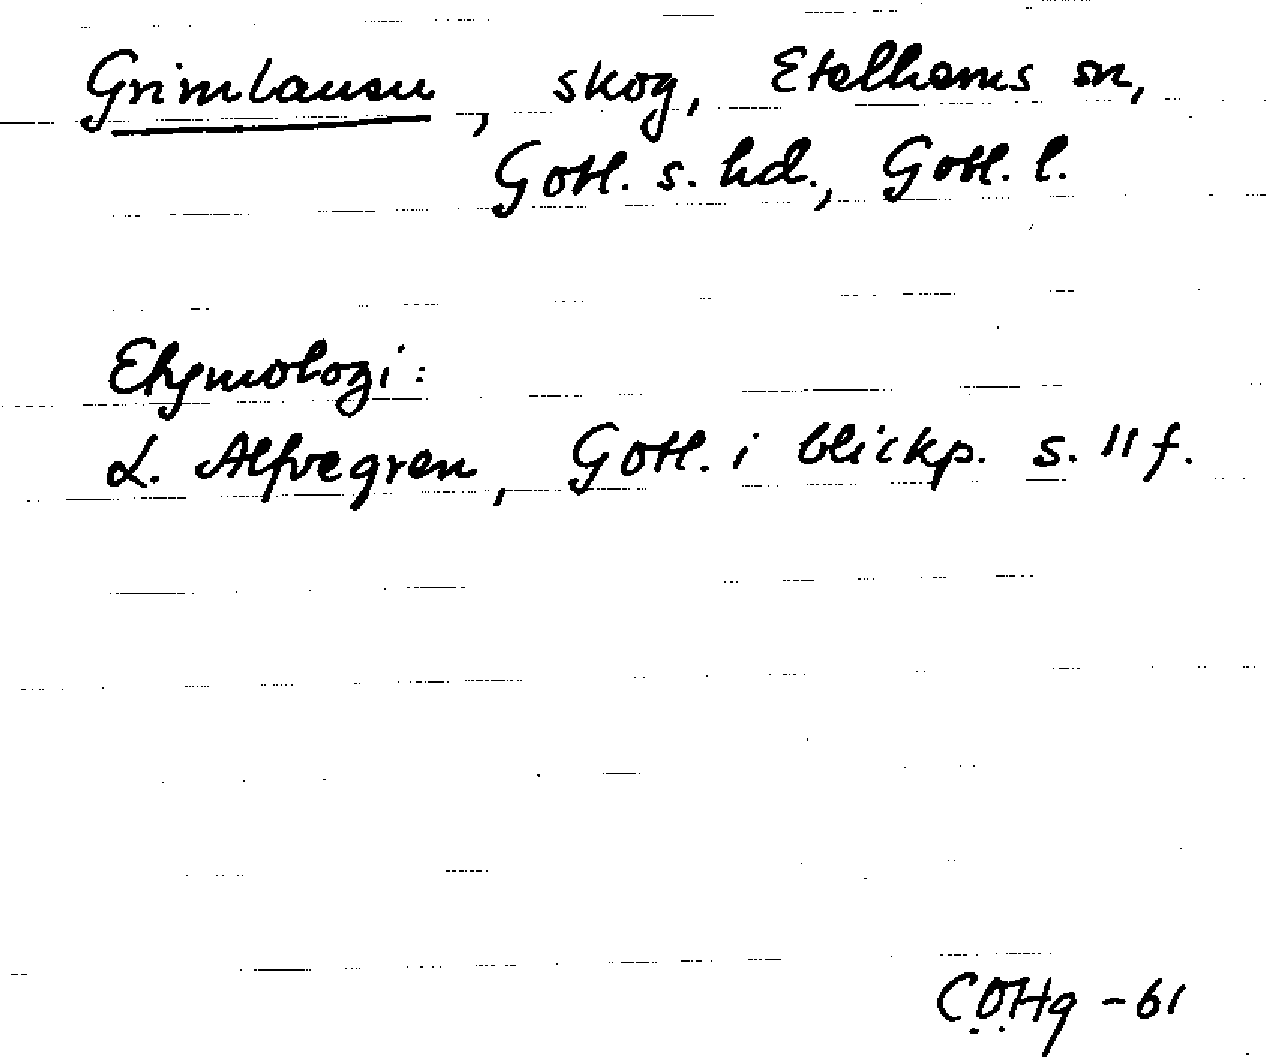 Grimlausu, skog, Etelhems sn,
Gotl. s. hd., Gotl. l.
Etymologi:
L. Alfvegren, Gotl. i blickp. s. 11 f.
COHg -61